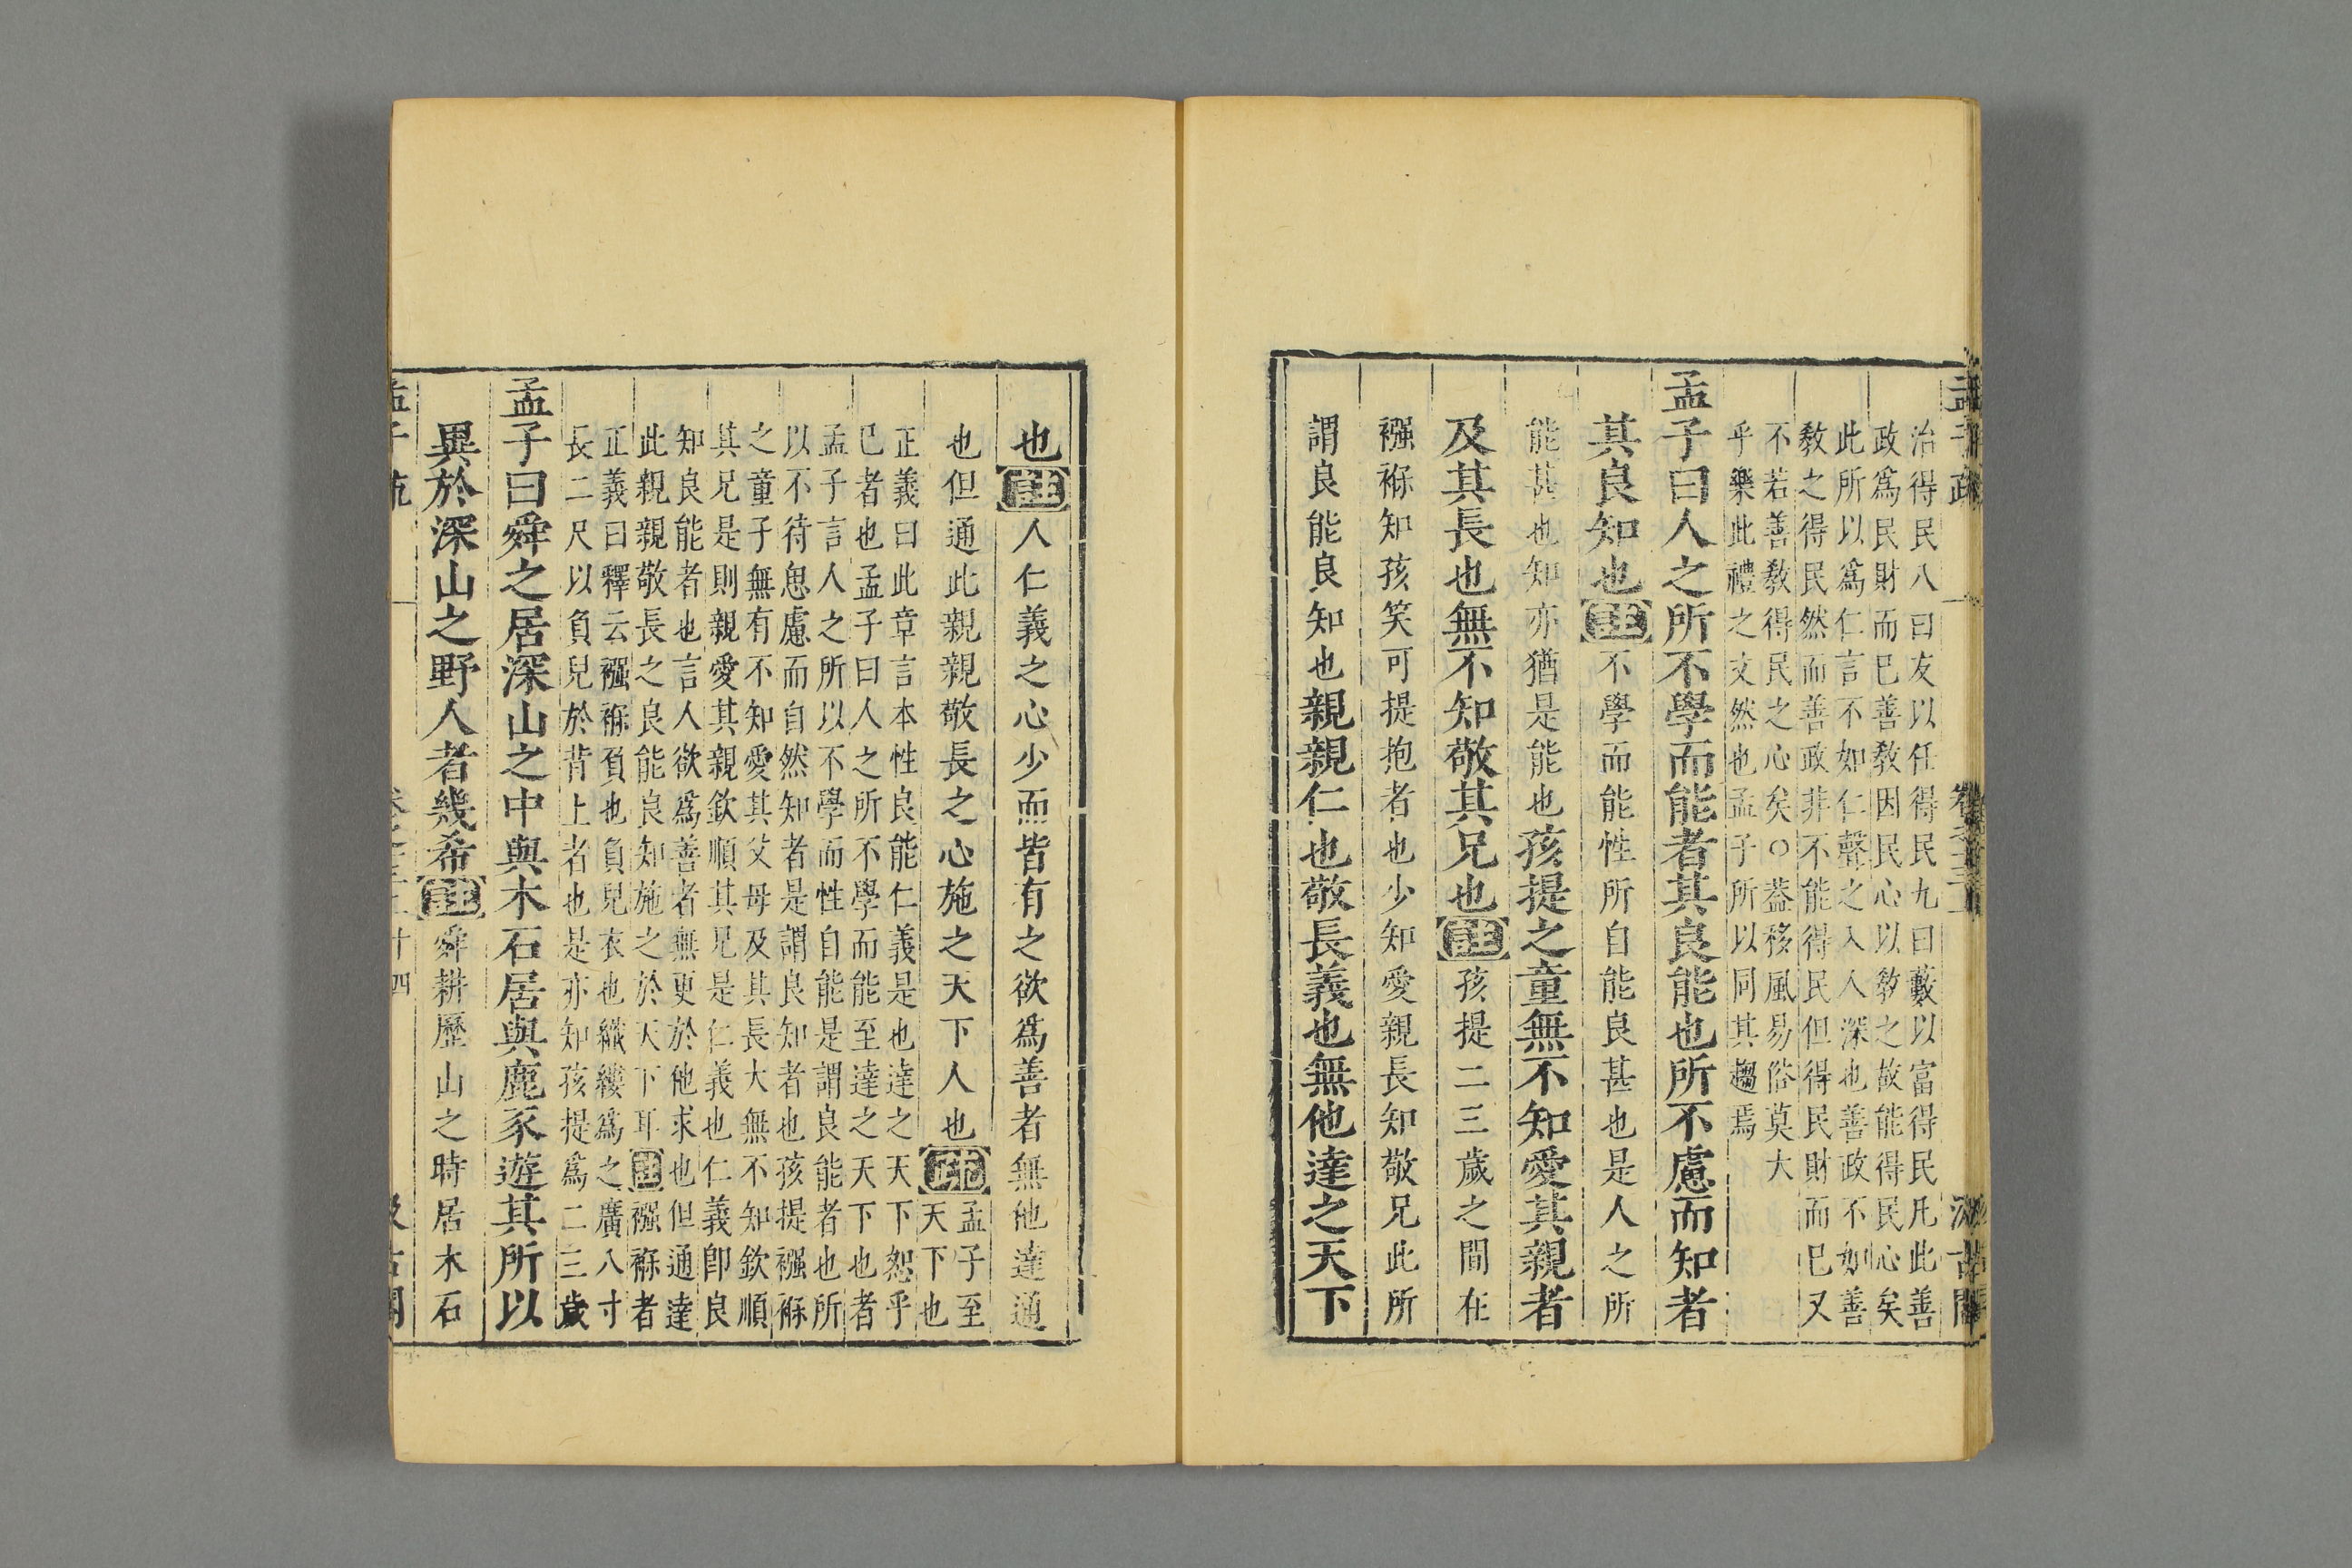 孟子疏 卷之十三 一 汲古閣
治得民八曰友以任得民九曰藪以富得民凡此善
政爲民財而巳善敎因民心以敎之故能得民心矣
此所以爲仁言不如仁聲之入人深也善政不如善
敎之得民然而善政非不能得民但得民財而巳又
不若善敎得民之心矣○葢移風易俗莫大
乎樂此禮之文然也孟子所以同其趨焉
孟子曰人之所不學而能者其良能也所不慮而知者
其良知也註不學而能性所自能良甚也是人之所
能甚也知亦猶是能也孩提之童無不知愛其親者
及其長也無不知敬其兄也註孩提二三歲之間在
襁褓知孩笑可提抱者也少知愛親長知敬兄此所
謂良能良知也親親仁也敬長義也無他達之天下
也註人仁義之心少而皆有之欲爲善者無他達通
也但通此親親敬長之心施之天下人也疏孟子至
天下也
正義曰此章言本性良能仁義是也達之天下恕乎
巳者也孟子曰人之所不學而能至達之天下也者
孟子言人之所以不學而性自能是謂良能者也所
以不待思慮而自然知者是謂良知者也孩提襁褓
之童子無有不知愛其父母及其長大無不知欽順
其兄是則親愛其親欽順其兄是仁義也仁義卽良
知良能者也言人欲爲善者無更於他求也但通達
此親親敬長之良能良知施之於天下耳註襁褓者
正義曰釋云襁褓負也負兒衣也織縷爲之廣八寸
長二尺以負兒於背上者也是亦知孩提爲二三歲
孟子曰舜之居深山之中與木石居與鹿豕遊其所以
異於深山之野人者幾希註舜耕歷山之時居木石
孟子疏 十四